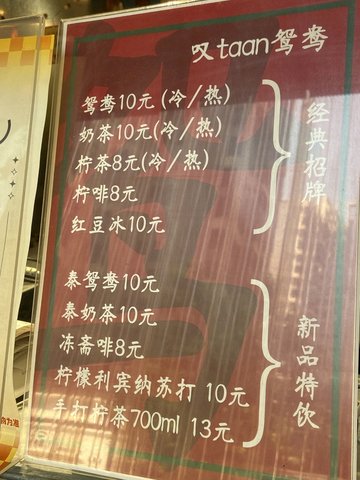 叹taan鸳鸯
鸳鸯10元(冷/热)
奶茶10元(冷/热)
柠茶8元(冷/热)
柠啡8元
红豆冰10元
经典招牌
泰鸳鸯10元
泰奶茶10元
冻斋啡8元
柠檬利宾纳苏打 10元
手打柠茶700ml 13元
新品特饮